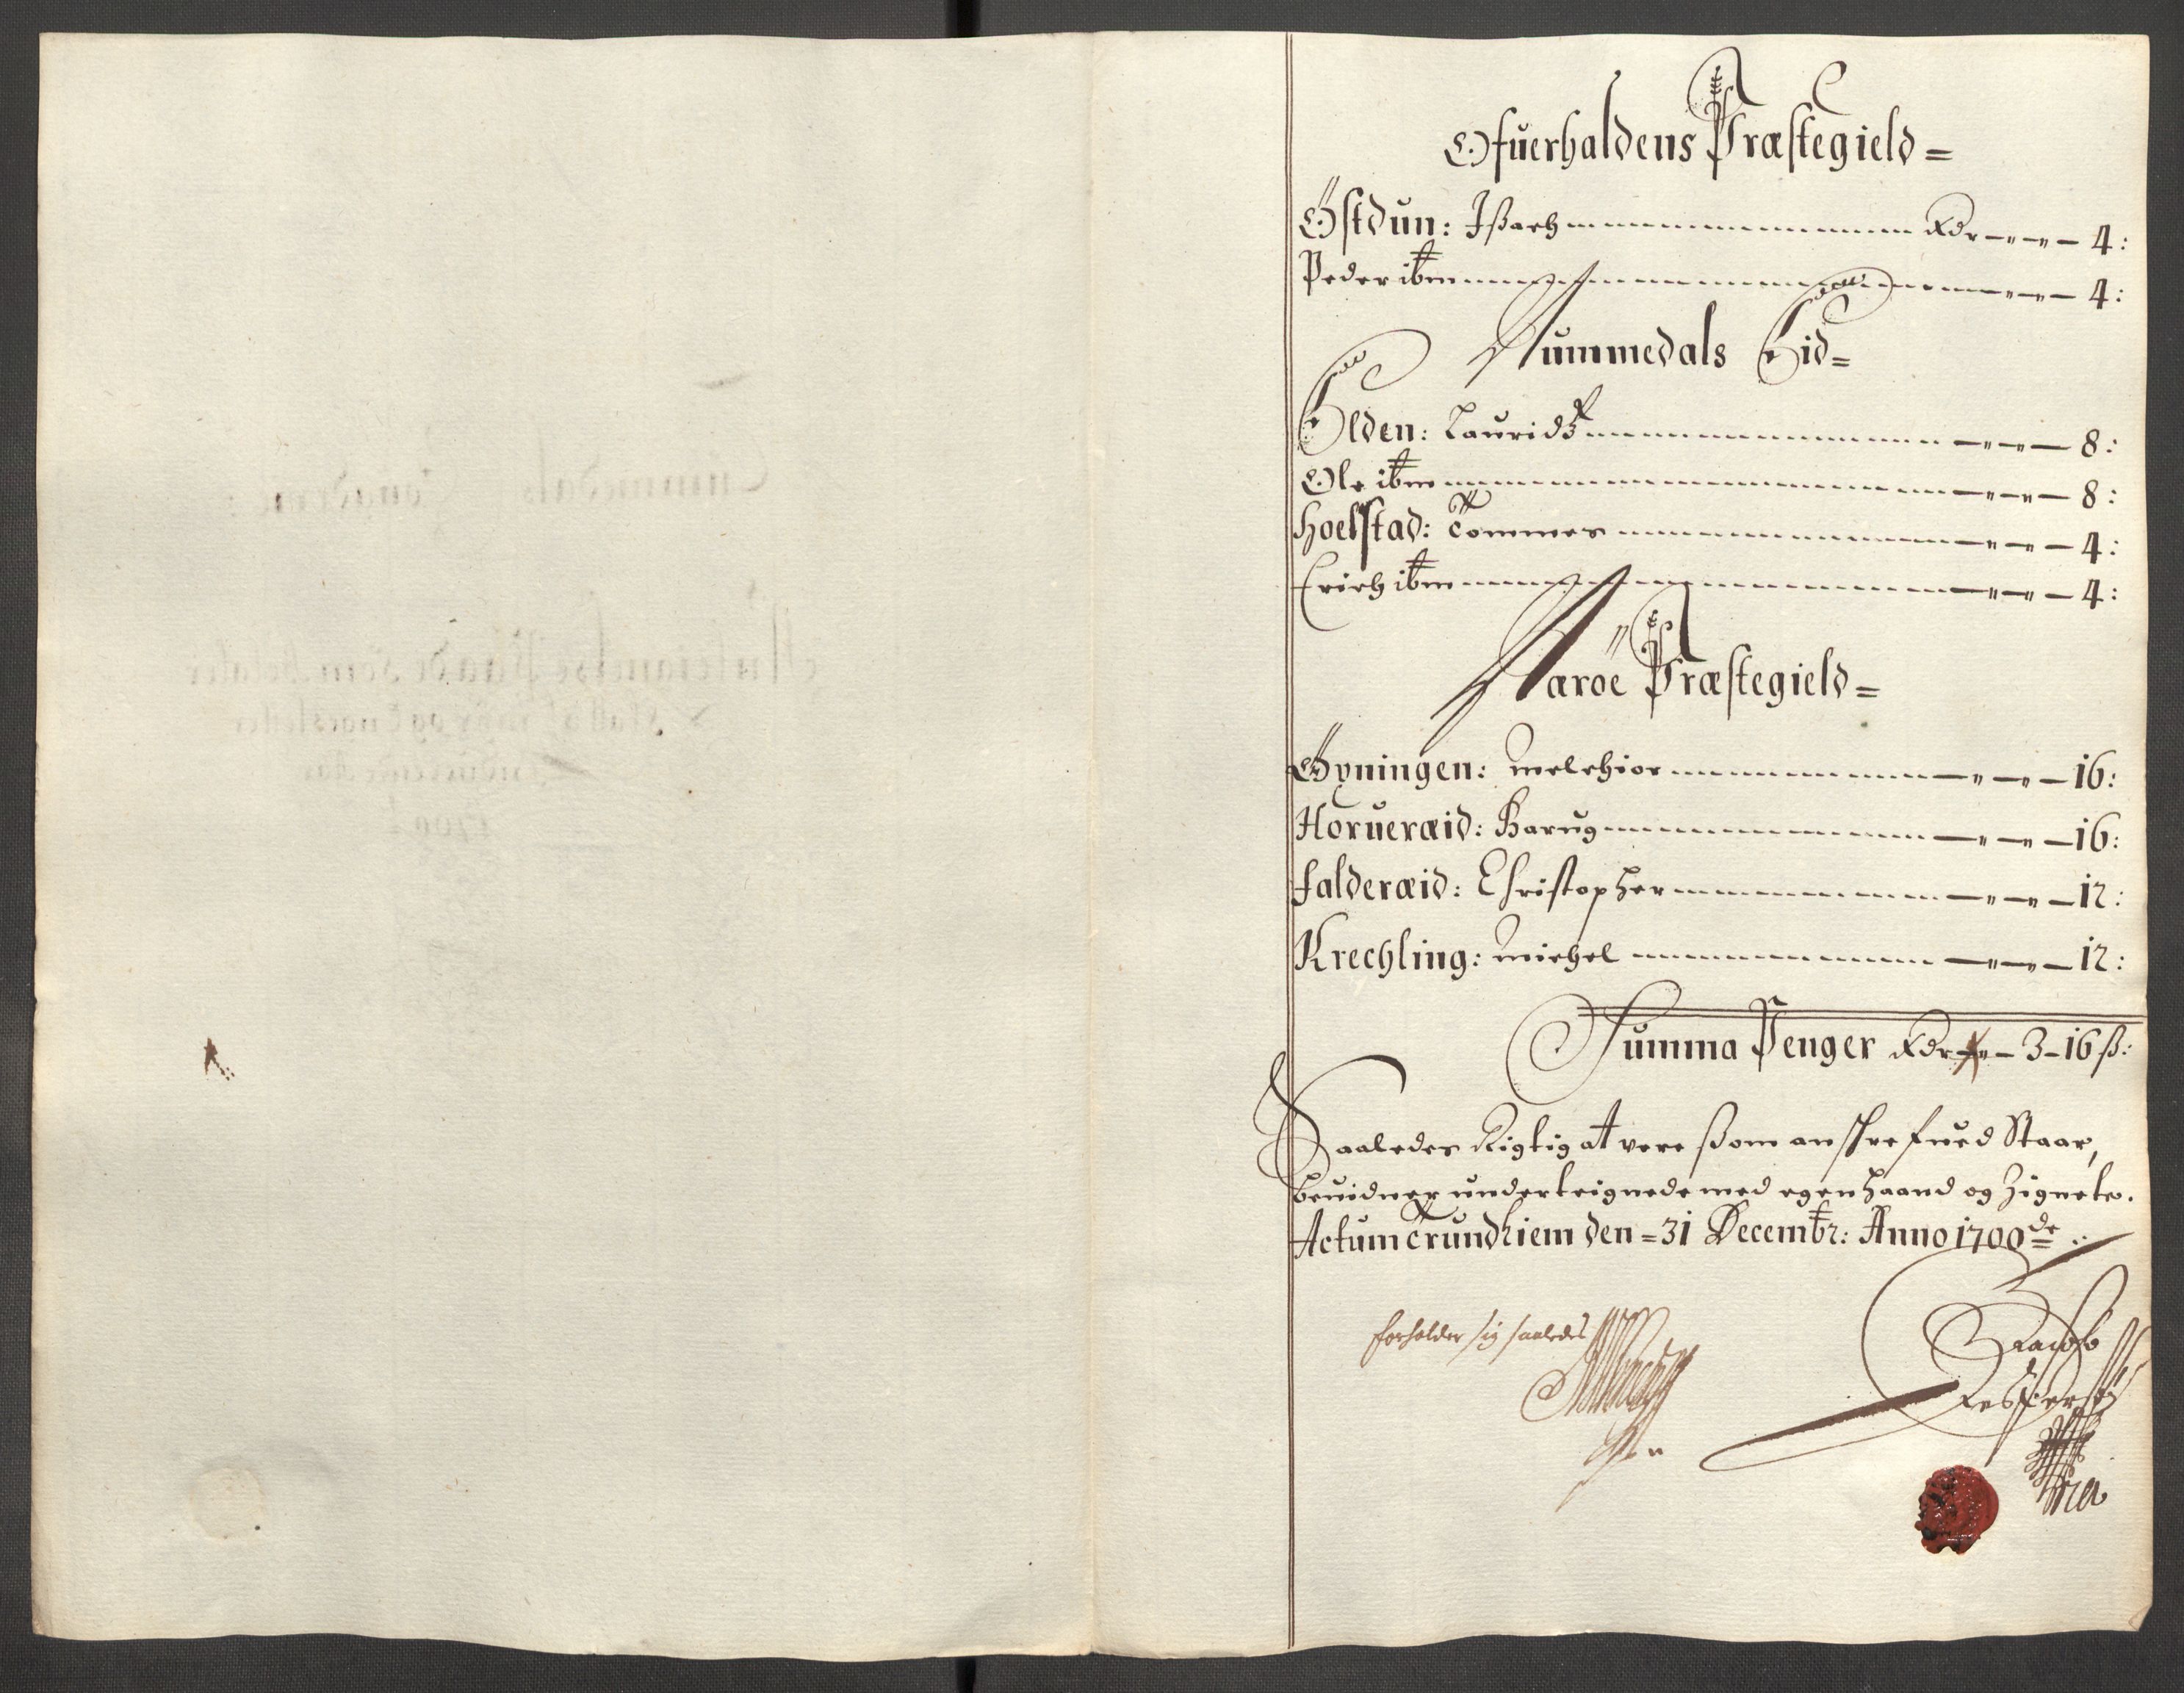 Ofuerhaldens Præstegield =
Østdun: Ißach Rdr 4:
Peder ibm 4:
Nummedals Eid =
Elden: Lauridtz 8:
Ole ibm 8:
Hoelstad: Tommes 4:
Erich ibm 4:
Naröe Præstegield =
Gyningen: Melchior 16:
Horueræid: Harug 16:
Falderæid: Christopher 12:
Krechling: Michel 12:
Summa Penger Rdr 3 - 16 ß:
Saaledes Rigtig at vere ßom anschrefued Staar,
beuidner underteignede med egen haand og Zignete.
Actum Trundhiem den = 31 Decembr: Anno 1700de
forholder sig saaledes
Jacob
Jespersen